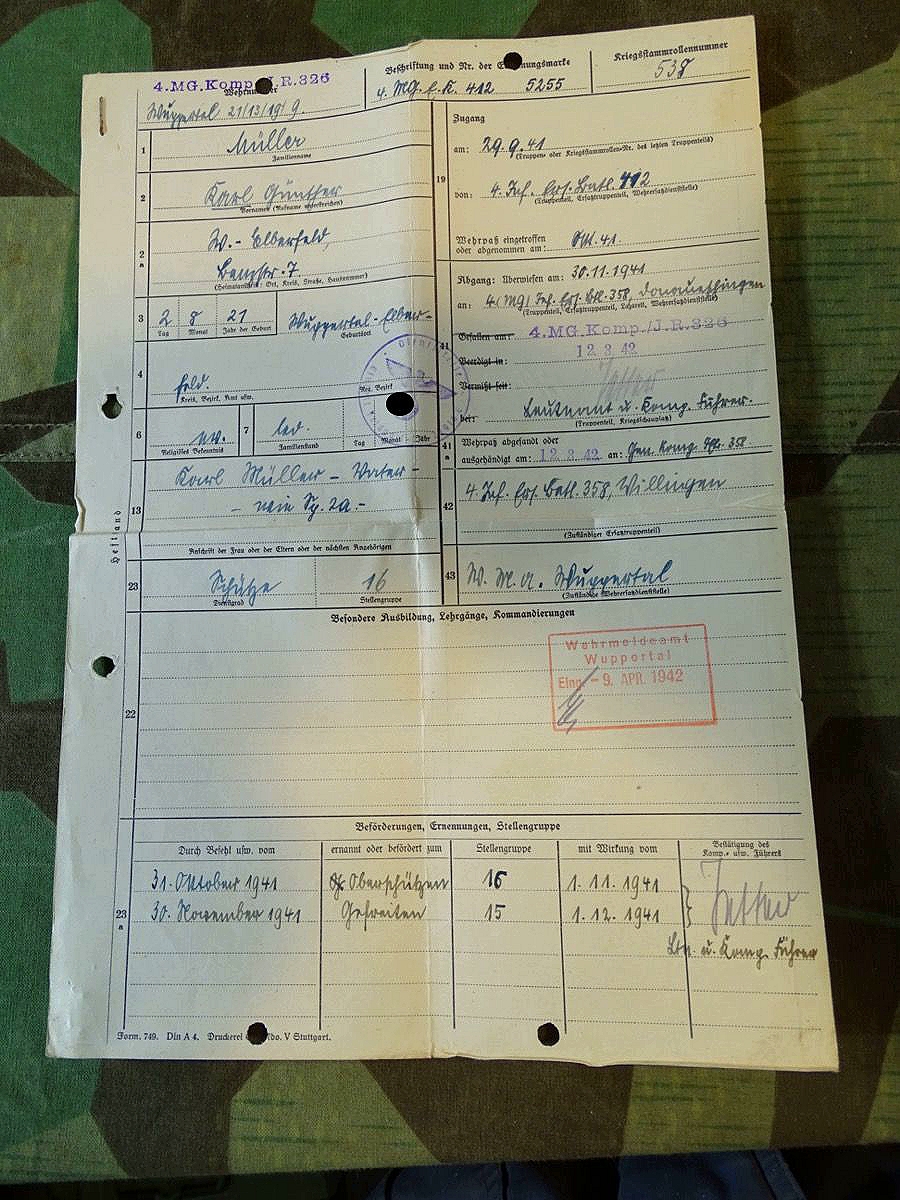 4.MG.Komp./J.R.326
Wehrnummer
Wuppertal 21/13/19/9.
Beschriftung und Nr. der Erkennungsmarke
4. MG. E. K. 412 5255
Kriegsstammrollennummer
538
1
Müller
Familienname
2
Karl Günther
Vornamen (Rufname unterstreichen)
2a
W.- Elberfeld,
7
(Heimatanschrift: Ort, Kreis, Straße, Hausnummer)
3
2 8 21
Tag Monat Jahr der Geburt
Wuppertal-Elber-
Geburtsort
4
feld.
Kreis, Bezirk, Amt usw.
Reg. Bezirk
6
ev.
Religiöses Bekenntnis
7
led.
Familienstand
Tag Monat Jahr
13
Karl Müller - Vater -
- wie Sp. 2a. -
Anschrift der Frau oder der Eltern oder der nächsten Angehörigen
Heftrand
23
Schütze
Dienstgrad
16
Stellengruppe
19
Zugang
am: 29.9.41
(Truppen- oder Kriegsstammrollen-Nr. des letzten Truppenteils)
von: 4. Inf. Ers. Batl. 412
(Truppenteil, Ersatztruppenteil, Wehrersatzdienststelle)
Wehrpaß eingetroffen
oder abgenommen am: Okt. 41.
41
Abgang: Überwiesen am: 30.11.1941
an: 4.(MG) Inf. Ers. Btl. 358, Donaueschingen
(Truppenteil, Ersatztruppenteil, Lazarett, Wehrersatzdienststelle)
Gefallen am: 4.MG.Komp./J.R.326
Beerdigt in: 12 3. 42
Vermißt seit:
bei: Leutnant u. Komp. Führer.
(Truppenteil, Kriegsschauplatz)
41a
Wehrpaß abgesandt oder
ausgehändigt am: 12 3. 42 an: Gen. Komp. 358
42
4. Inf. Ers. Batl. 358, Villingen
(Zuständiger Ersatztruppenteil)
43
W. M. A. Wuppertal
(Zuständige Wehrersatzdienststelle)
Besondere Ausbildung, Lehrgänge, Kommandierungen
22
Wehrmeldeamt
Wuppertal
Eing. - 9. APR. 1942
Beförderungen, Ernennungen, Stellengruppe
Durch Befehl usw. vom
ernannt oder befördert zum
Stellengruppe
mit Wirkung vom
Bestätigung des
Komp.- usw. Führers
23a
31. Oktober 1941 Oberschützen 16 1.11.1941
30. November 1941 Gefreiten 15 1.12.1941
Ltn. u. Komp. Führer
Form. 749. Din A 4. Druckerei V Stuttgart.